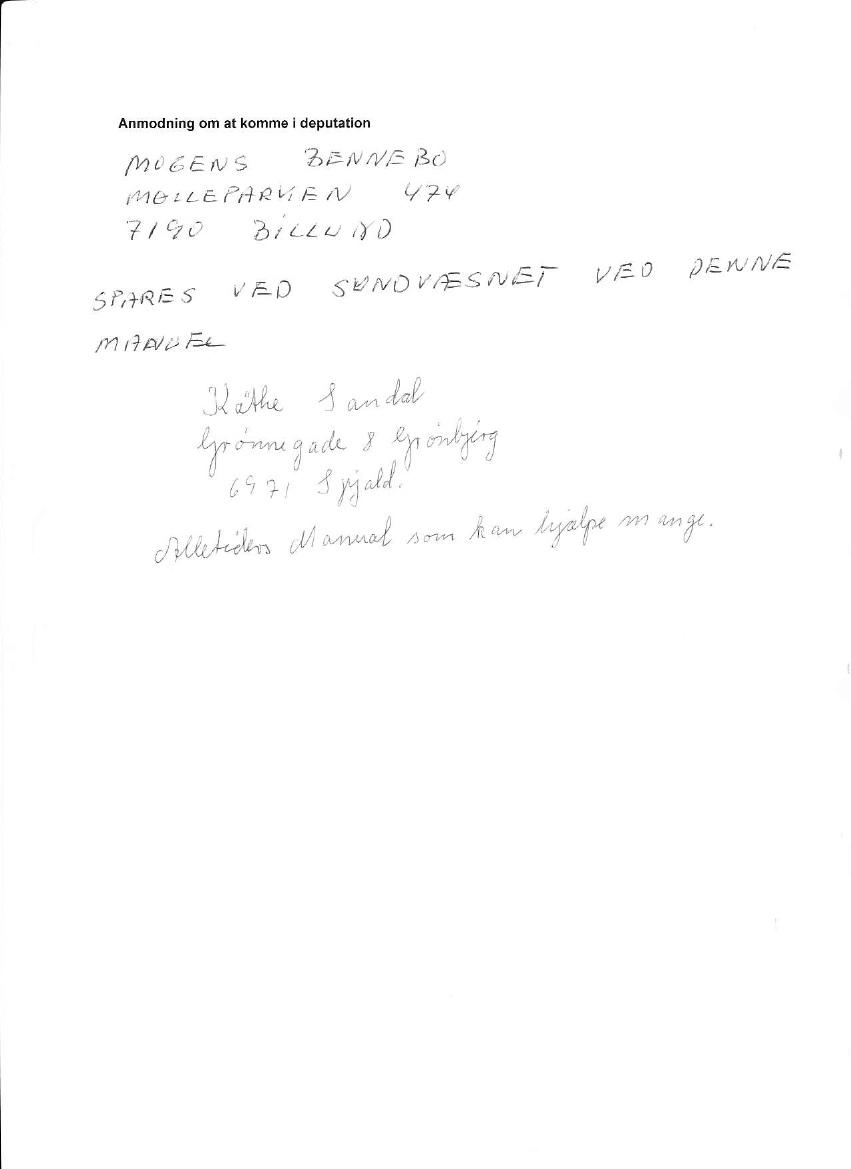 Anmodning om at komme i deputation
MOGENS BENNEBO
MØLLEPARKEN 474
7190 BILLUND
SPARES VED SUNDVÆSNET VED DENNE
MANUEL
Käthe Sandal
Grønnegade 8 Grønbjerg
6971 Spjald.
Alletiders Manual som kan hjælpe mange.